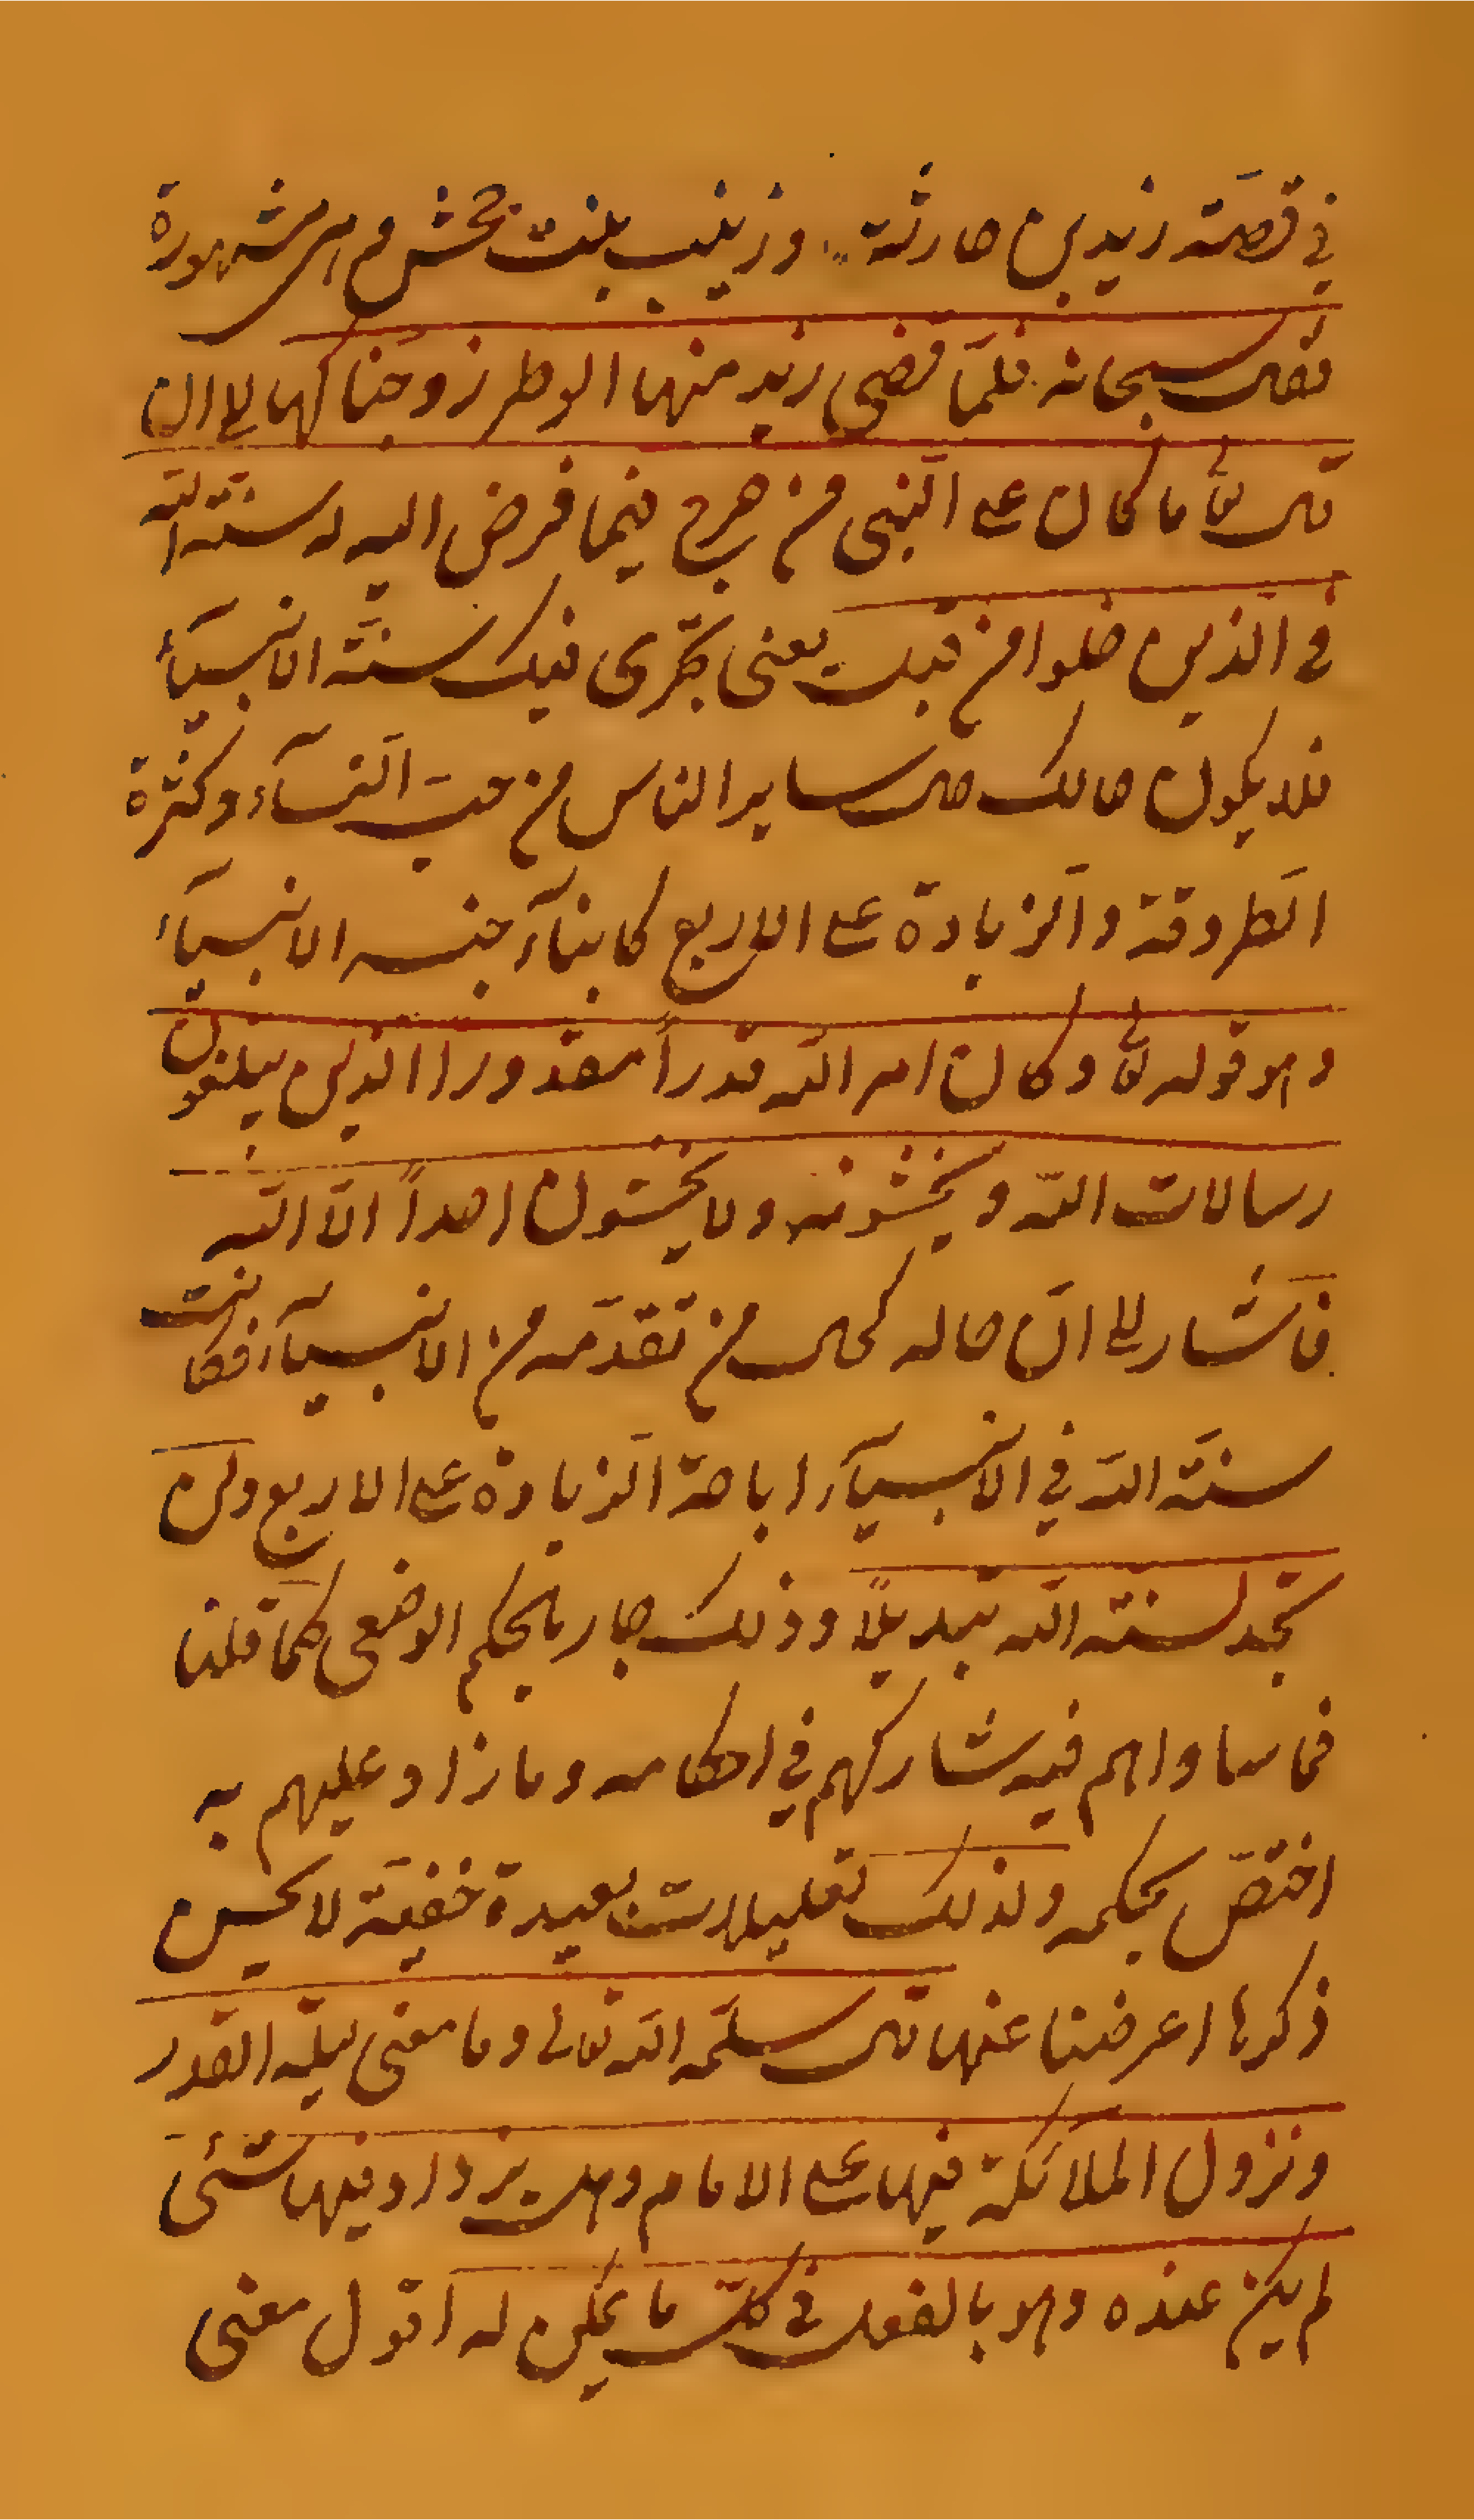 في قصّة زيد بن حارثة وزينب بنت جحش وهى مشهورة
فقال سبحانه فلمّا قضى زيد منها الوطر زوّجناكها الى ان
قال تعا ما كان على النّبى من حرج فيما فرض الله له سنّة الله
فى الّذين خلوا من قبل يعنى تجرى فيك سنّة الانبيآء
فلا يكون حالك حال ساير الناس من حبّ النّسآء وكثرة
الطّروقة والزّيادة على الاربع كابنآء جنسه الانبيآء
وهو قوله تعا وكان امر الله قدراً مقدورا الذين يبلغون
رسالات الله ويخشونه ولا يخشون احداً الّا الله
فاشار الى انّ حاله كحال من تقدّمه من الانبيآء فكانت
سنّة الله في الانبيآء اباحة الزّيادة على الاربع ولن
تجد لسنّة الله تبديلاً وذلك جار بالحكم الوضعى كما قلنا
فما ساواهم فيه شاركهم في احكامه وما زاد عليهم به
اختصّ بحكمه ولذلك تعليلات بعيدة خفيّة لا يحسن
ذكرها اعرضنا عنها قال سلّمه الله تعالى وما معنى ليلة القدر
ونزول الملائكة فيها على الامام وهل يزداد فيها شئى
لم يكن عنده وهو بالفعل في كلّ ما يمكن له اقول معنى